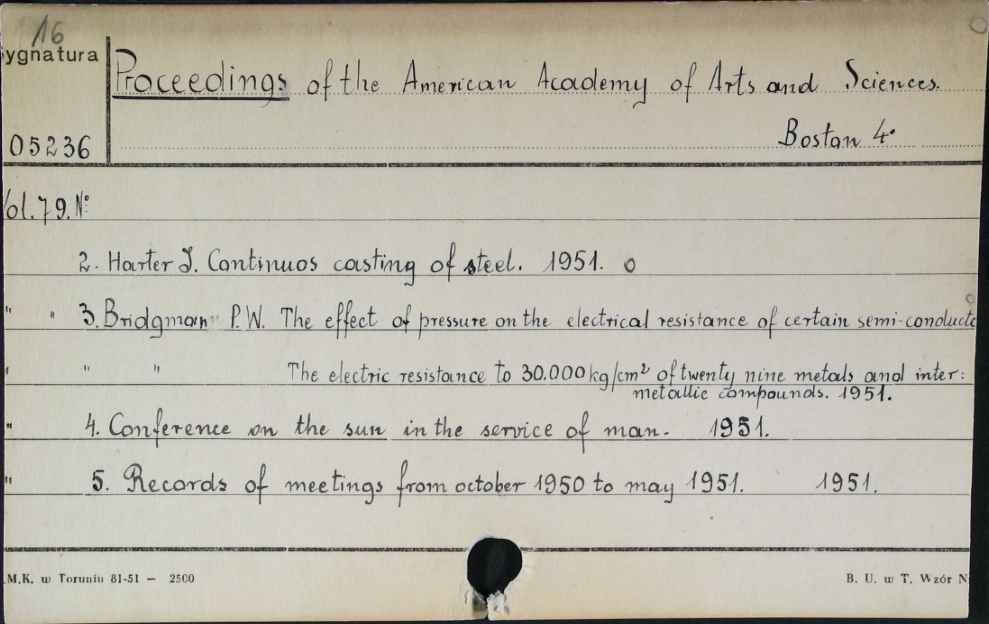 16
ygnatura
Proceedings of the American Academy of Arts and Sciences.
05236
Boston 4°
Vol. 79. N°
2. Harter J. Continuos casting of steel. 1951.
" " 3. Bridgman P.W. The effect of pressure on the electrical resistance of certain semi-conducto
" " " The electric resistance to 30.000 kg/cm² of twenty nine metals and inter:
metallic compounds. 1951.
" 4. Conference on the sun in the service of man. 1951.
" 5. Records of meetings from october 1950 to may 1951. 1951.
M.K. w Toruniu 81-51 — 2500
B. U. w T. Wzór N